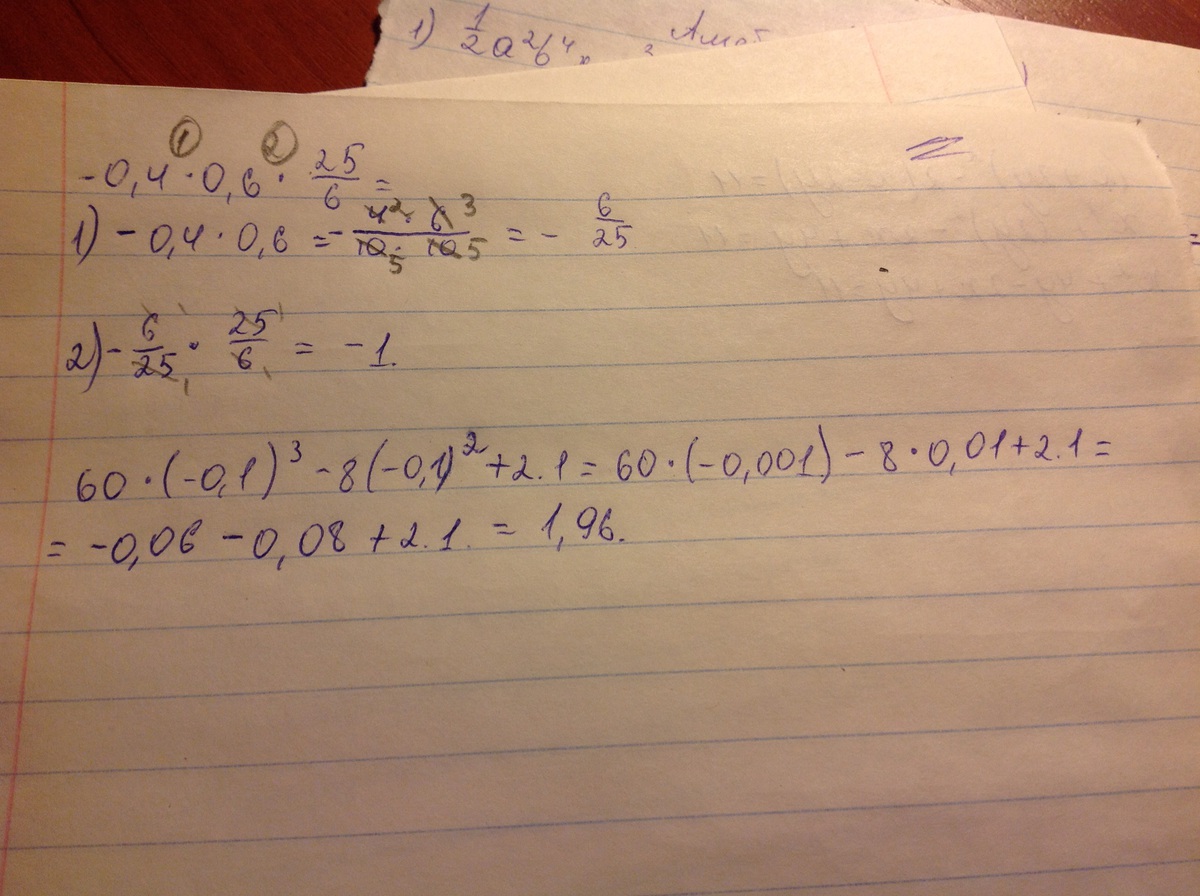 1) 1/2 a²b⁴
① ②
-0,4 · 0,6 · 25/6 =
1) - 0,4 · 0,6 = - 4 2 · 6 3 / 10 5 · 10 5 = - 6/25
2) - 6/25 · 25/6 = -1.
60 · (-0,1)³ - 8(-0,1)² + 2.1 = 60 · (-0,001) - 8 · 0,01 + 2.1 =
= -0,06 - 0,08 + 2.1. = 1,96.